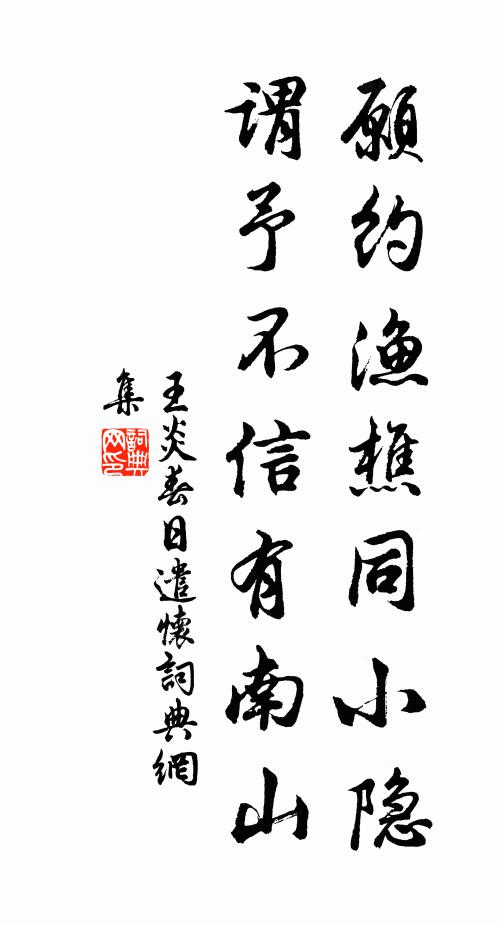 願約漁樵同小隐
謂予不信有南山
王炎春日遣懷詞典網
集
詞典
网印